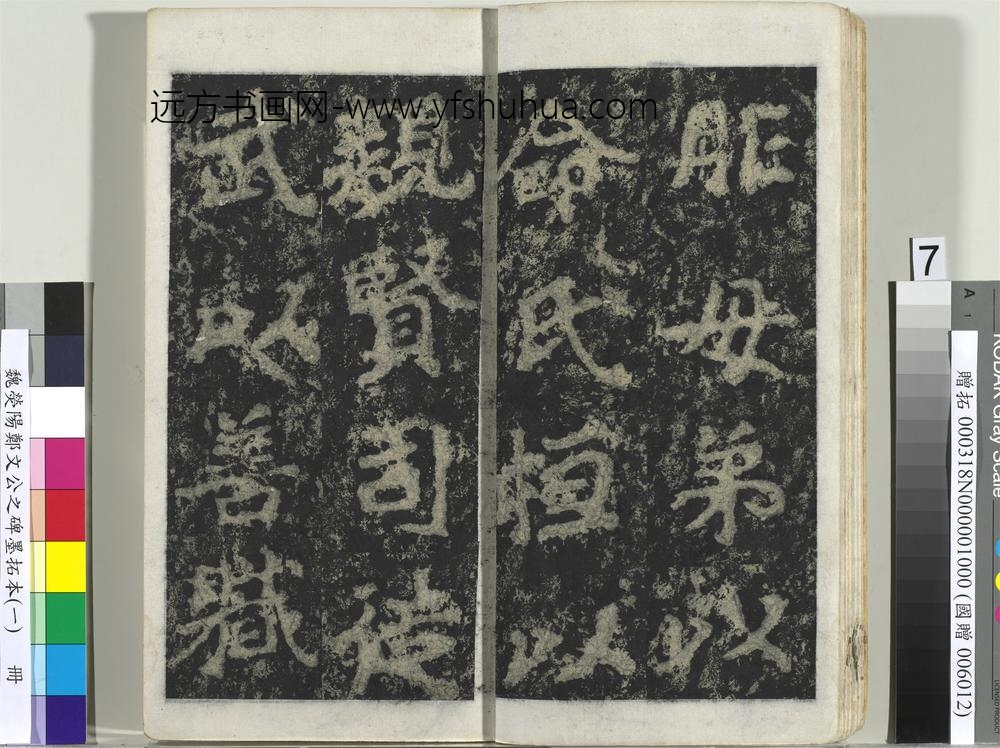 远方书画网-www.yfshuhua.com
胙母弟以
命氏桓以
親賢司徒
武以善職
魏滎陽鄭文公之碑墨拓本(一) 冊
7
A 1
贈拓 000318N000001000 (國贈 006012)
KODAK Gray Scale